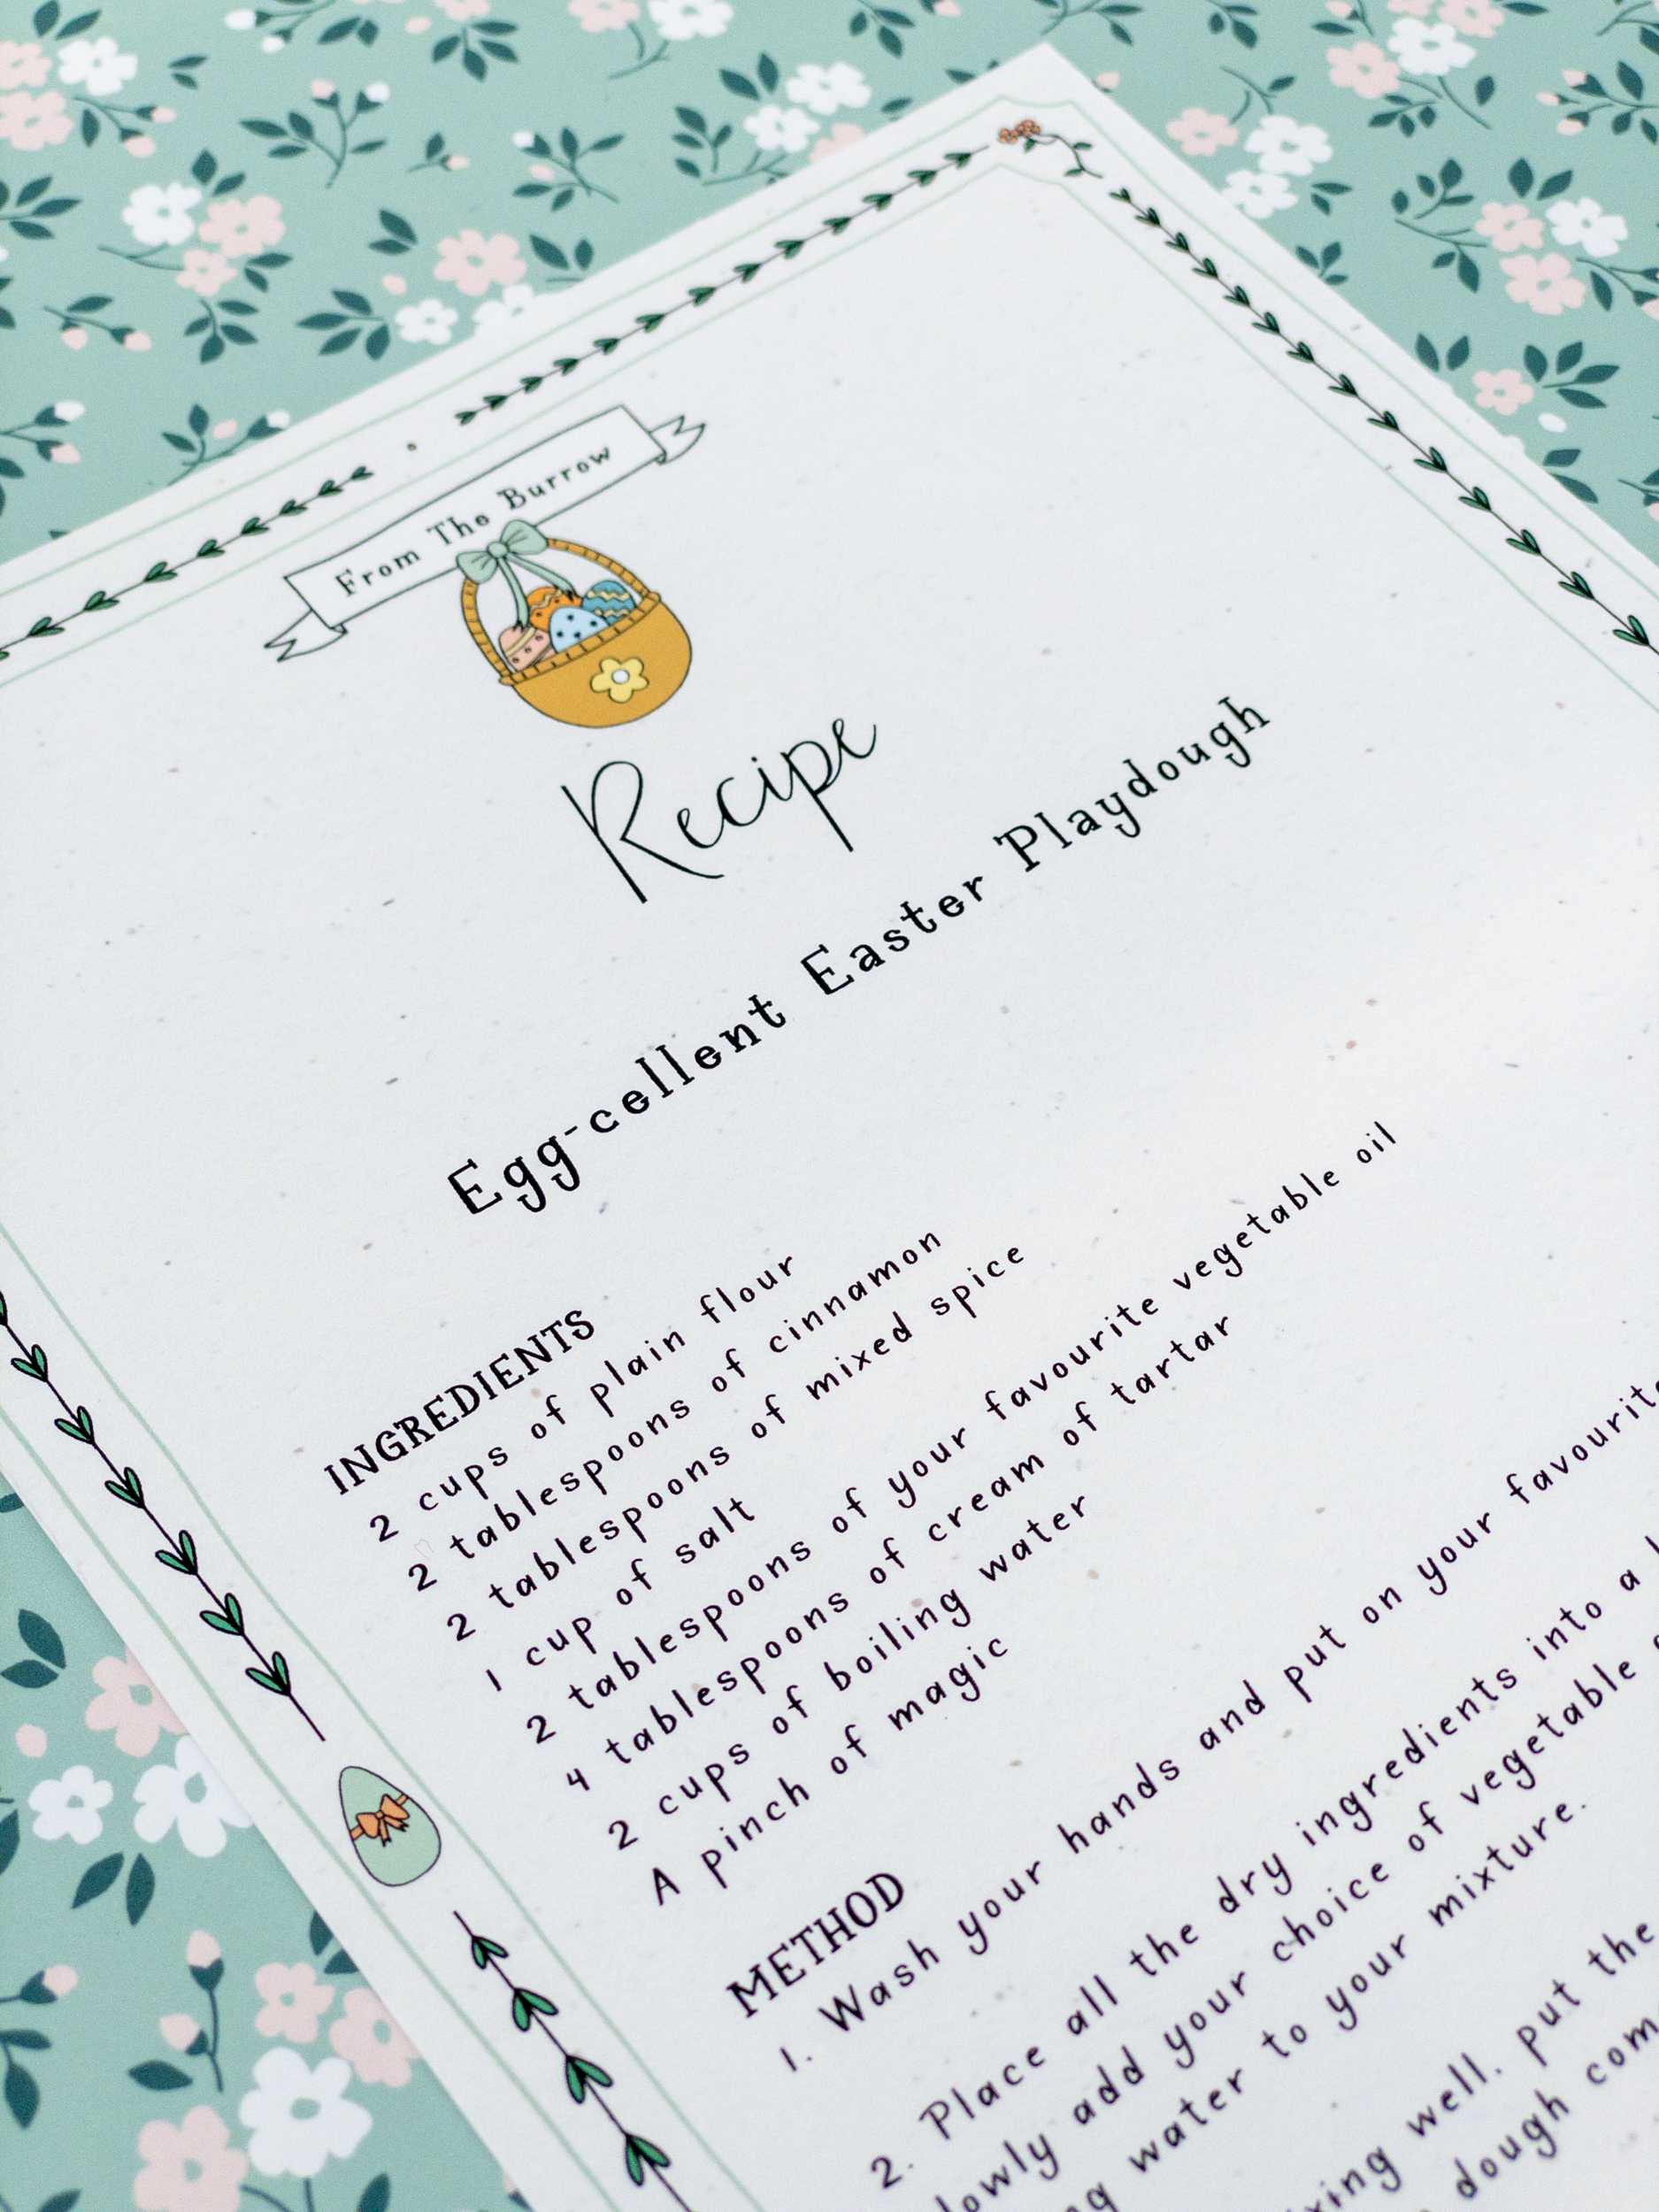 From The Burrow
Recipe
Egg-cellent Easter Playdough
INGREDIENTS
2 cups of plain flour
2 tablespoons of cinnamon
2 tablespoons of mixed spice
1 cup of salt
2 tablespoons of your favourite vegetable oil
4 tablespoons of cream of tartar
2 cups of boiling water
A pinch of magic
METHOD
1. Wash your hands and put on your favourite
2. Place all the dry ingredients into a
add your choice of vegetable
water to your mixture.
well. Put the
dough